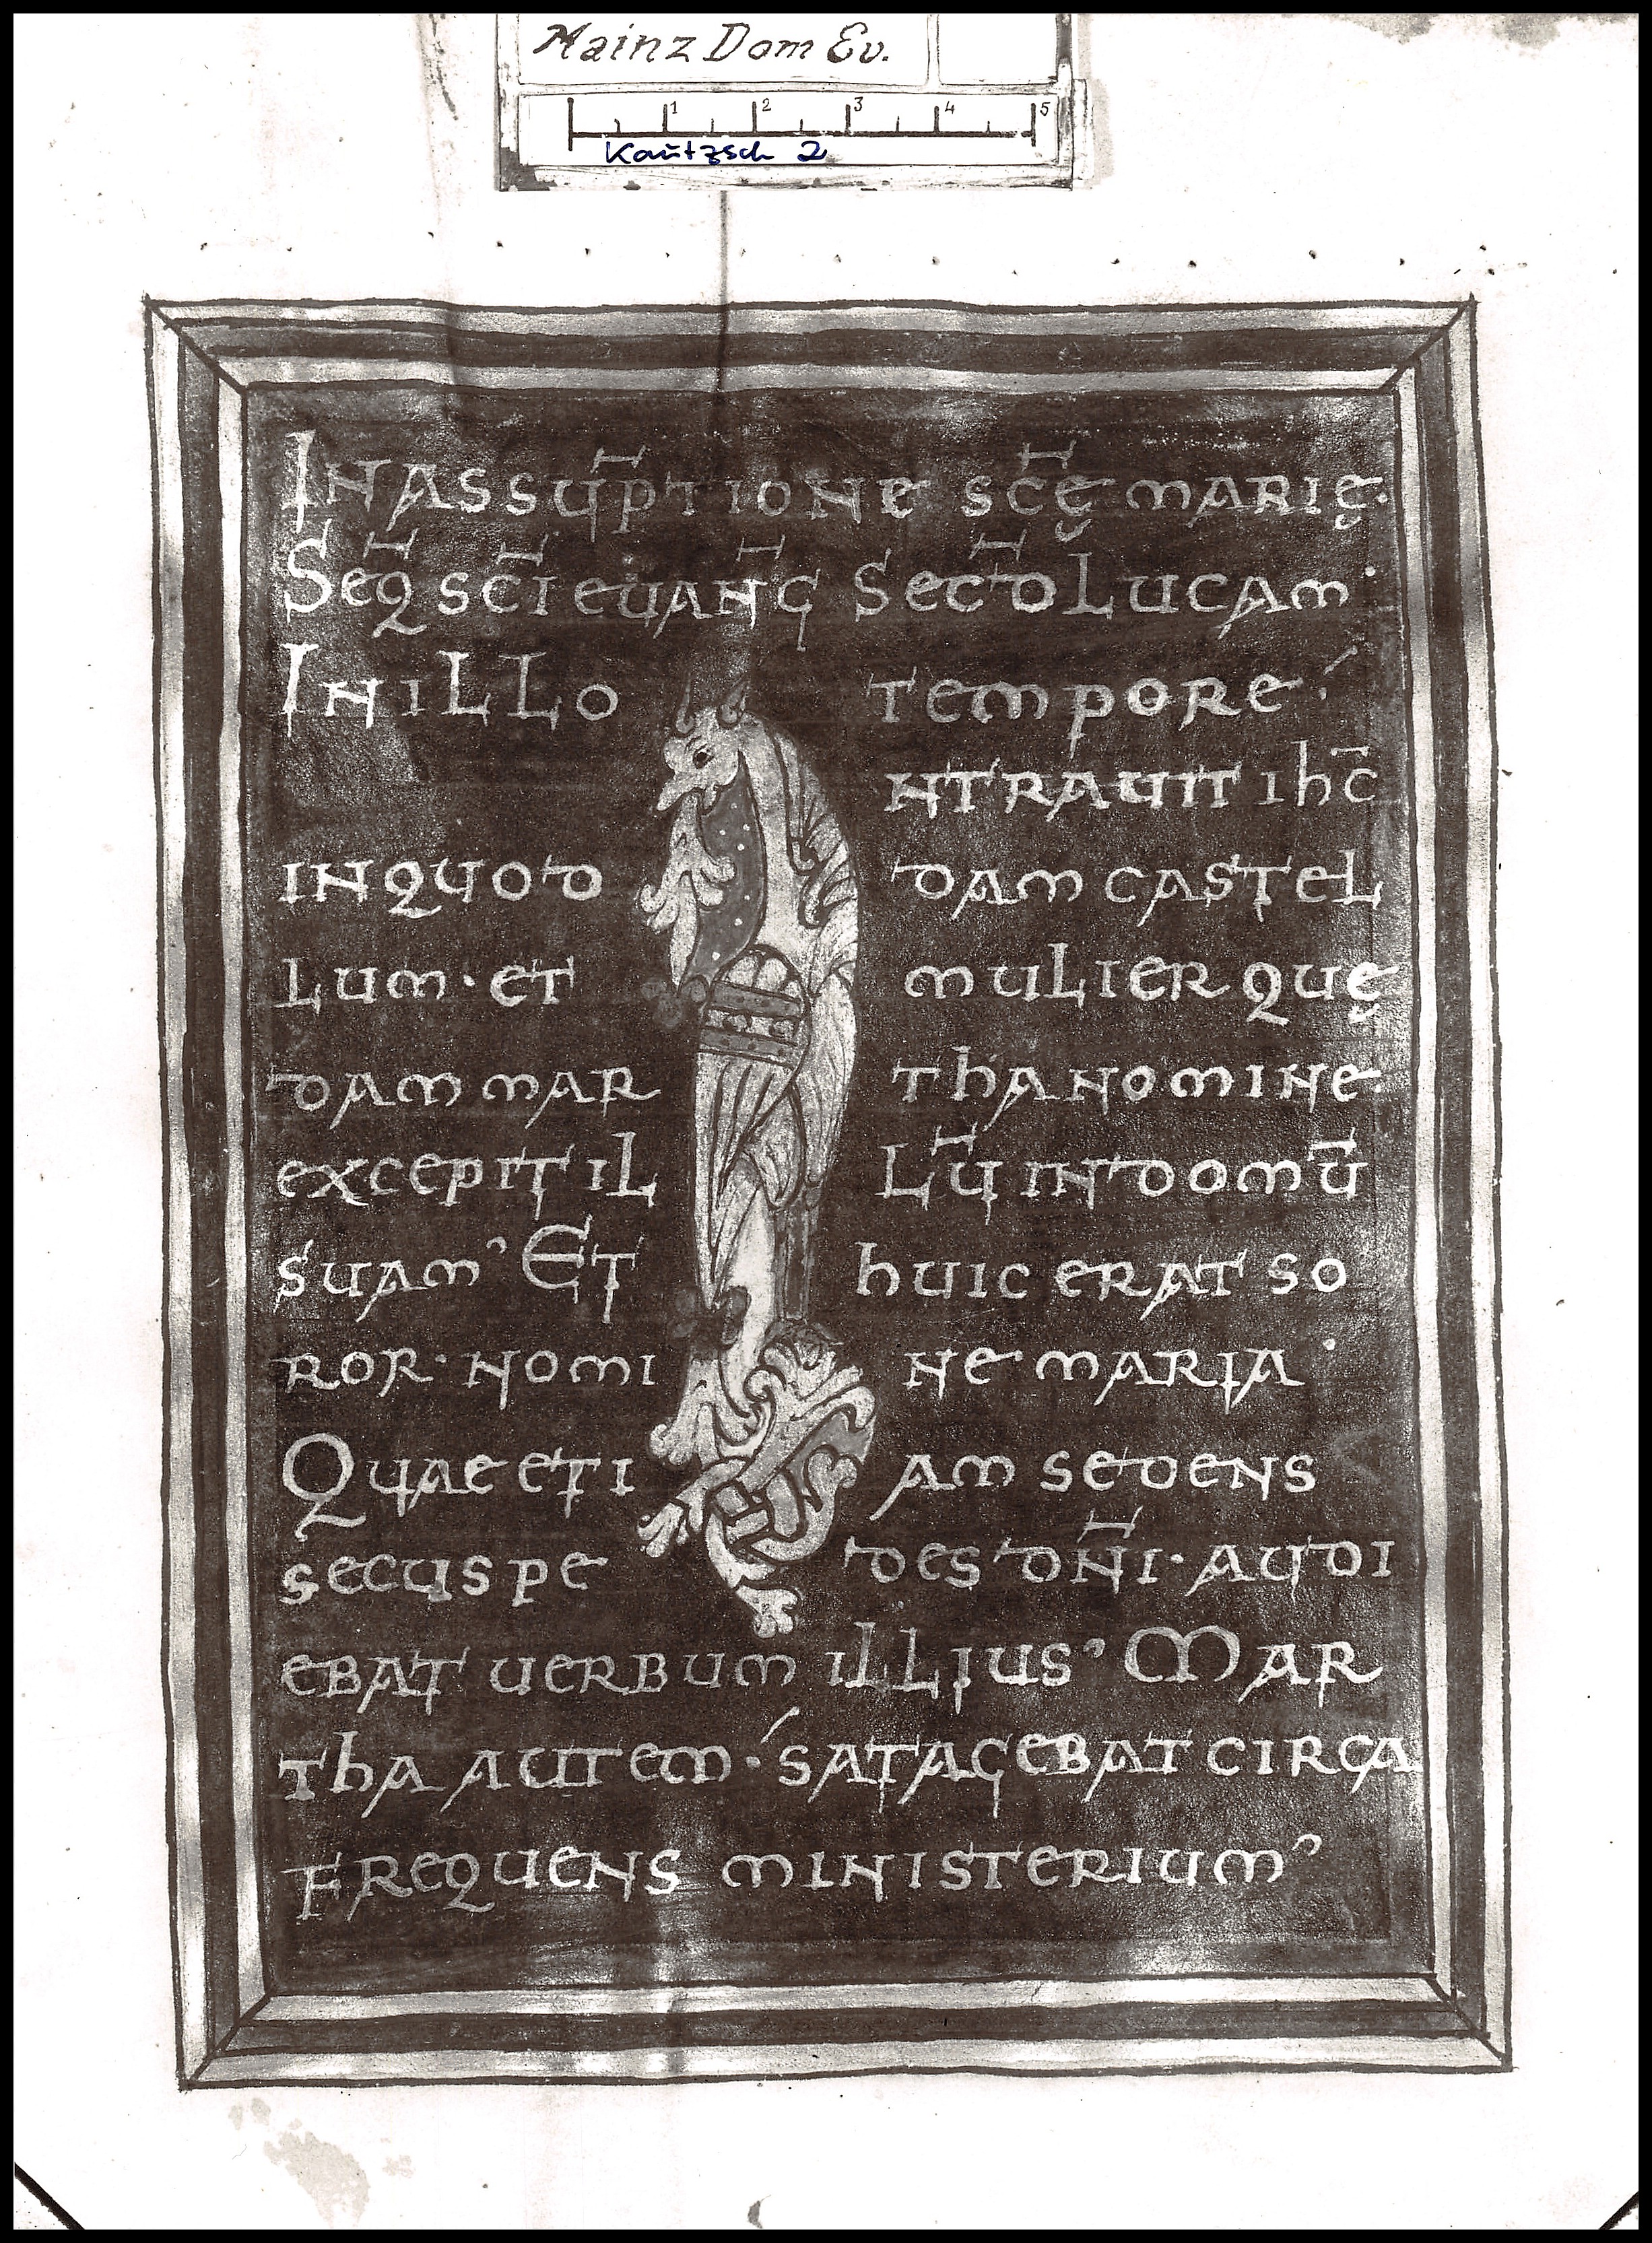 Mainz Dom Ev.
1 2 3 4 5
Kautzsch 2
IN ASSUP̄TIONE SC̄Ę MARIĘ.
SEQ̄ SC̄I EUAN̄G SEC̄D LUCAM·
IN ILLO TEMPORE·
INTRAUIT IHC̄
IN QUODDAM CASTEL
LUM· ET MULIER QUĘ
DAM MARTHA NOMINE·
EXCEPIT ILLŪ IN DOMŪ
SUAM· ET HUIC ERAT SO
ROR· NOMINE MARIA·
QUAE ETIAM SEDENS
SECUS PEDES DN̄I· AUDI
EBAT UERBUM ILLIUS· MAR
THA AUTEM· SATAGEBAT CIRCA
FREQUENS MINISTERIUM·